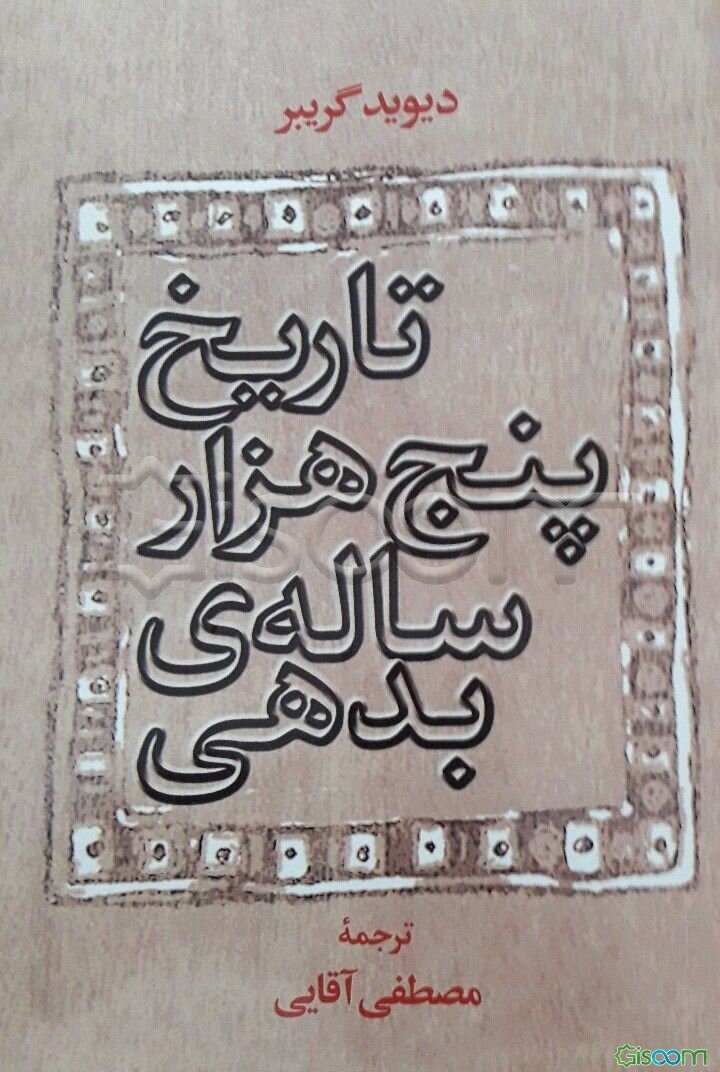 دیوید گریبر
تاریخ
پنج هزار
ساله‌ی
بدهی
ترجمهٔ
مصطفی آقایی
Gisoom
GISOOM